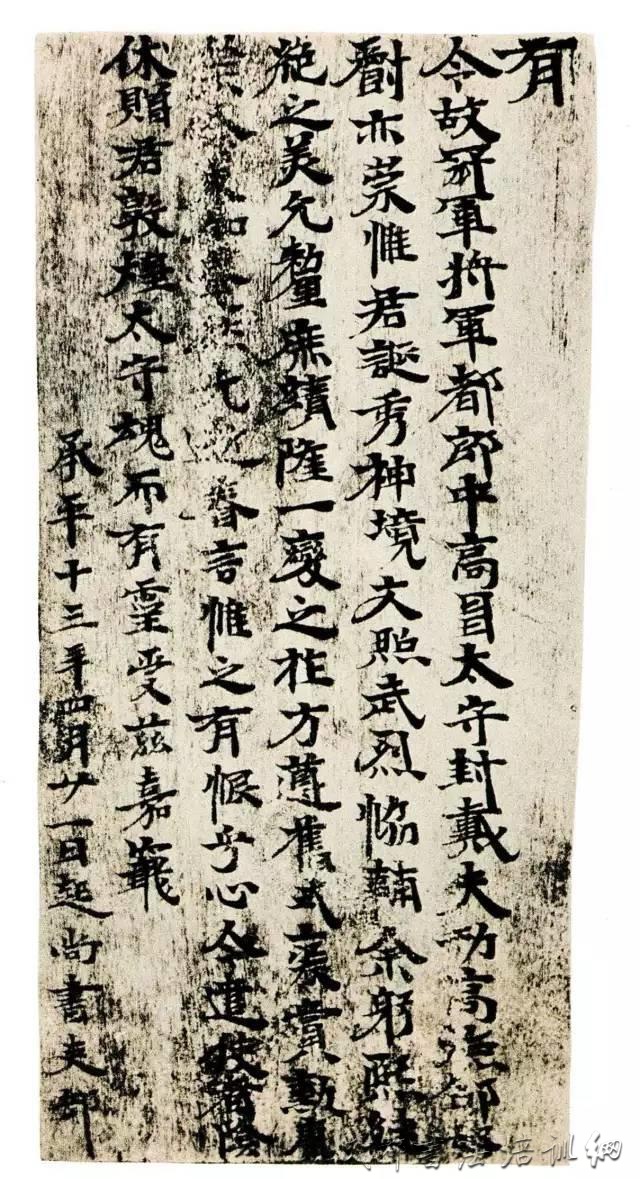 有
令故冠軍將軍都郎中高昌太守封戴夫功高德邵者
爵亦崇惟君誕秀神境文照武烈協輔余躬熙
之美允釐庶績隆一變之祚方遵舊式褒賞勳庸
眷言惟之有恨乎心今遣使者陰
休贈君敦煌太守魂而有靈受茲嘉寵
承平十三年四月廿一日起尚書吏部
书法培训網